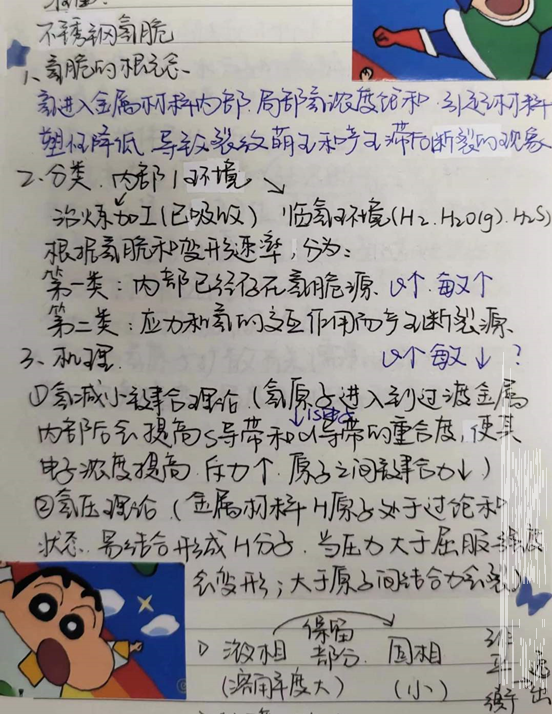 不锈钢氢脆
1、氢脆的概念、
氢进入金属材料内部,局部氢浓度饱和,引起材料
塑性降低,导致裂纹萌生和产生滞后断裂的现象
2、分类、内部/环境
冶炼加工(已吸收) 临氢环境(H2、H2O(g)、H2S)
根据氢脆和变形速率,分为:
第一类:内部已经存在氢脆源、v个、敏个
第二类:应力和氢的交互作用而产生断裂源、
3、机理、 v个敏↓ ?
①氢减小键合理论(氢原子进入到过渡金属
↓1s电子
内部后会提高s导带和d导带的重合度,使其
电子浓度提高、斥力个、原子之间键合力↓)
②氢压理论(金属材料H原子处于过饱和
状态、易结合形成H分子、当压力大于屈服强度
会变形;大于原子间结合力会裂)
保留
① 液相 部分 固相
(溶解度大) (小)